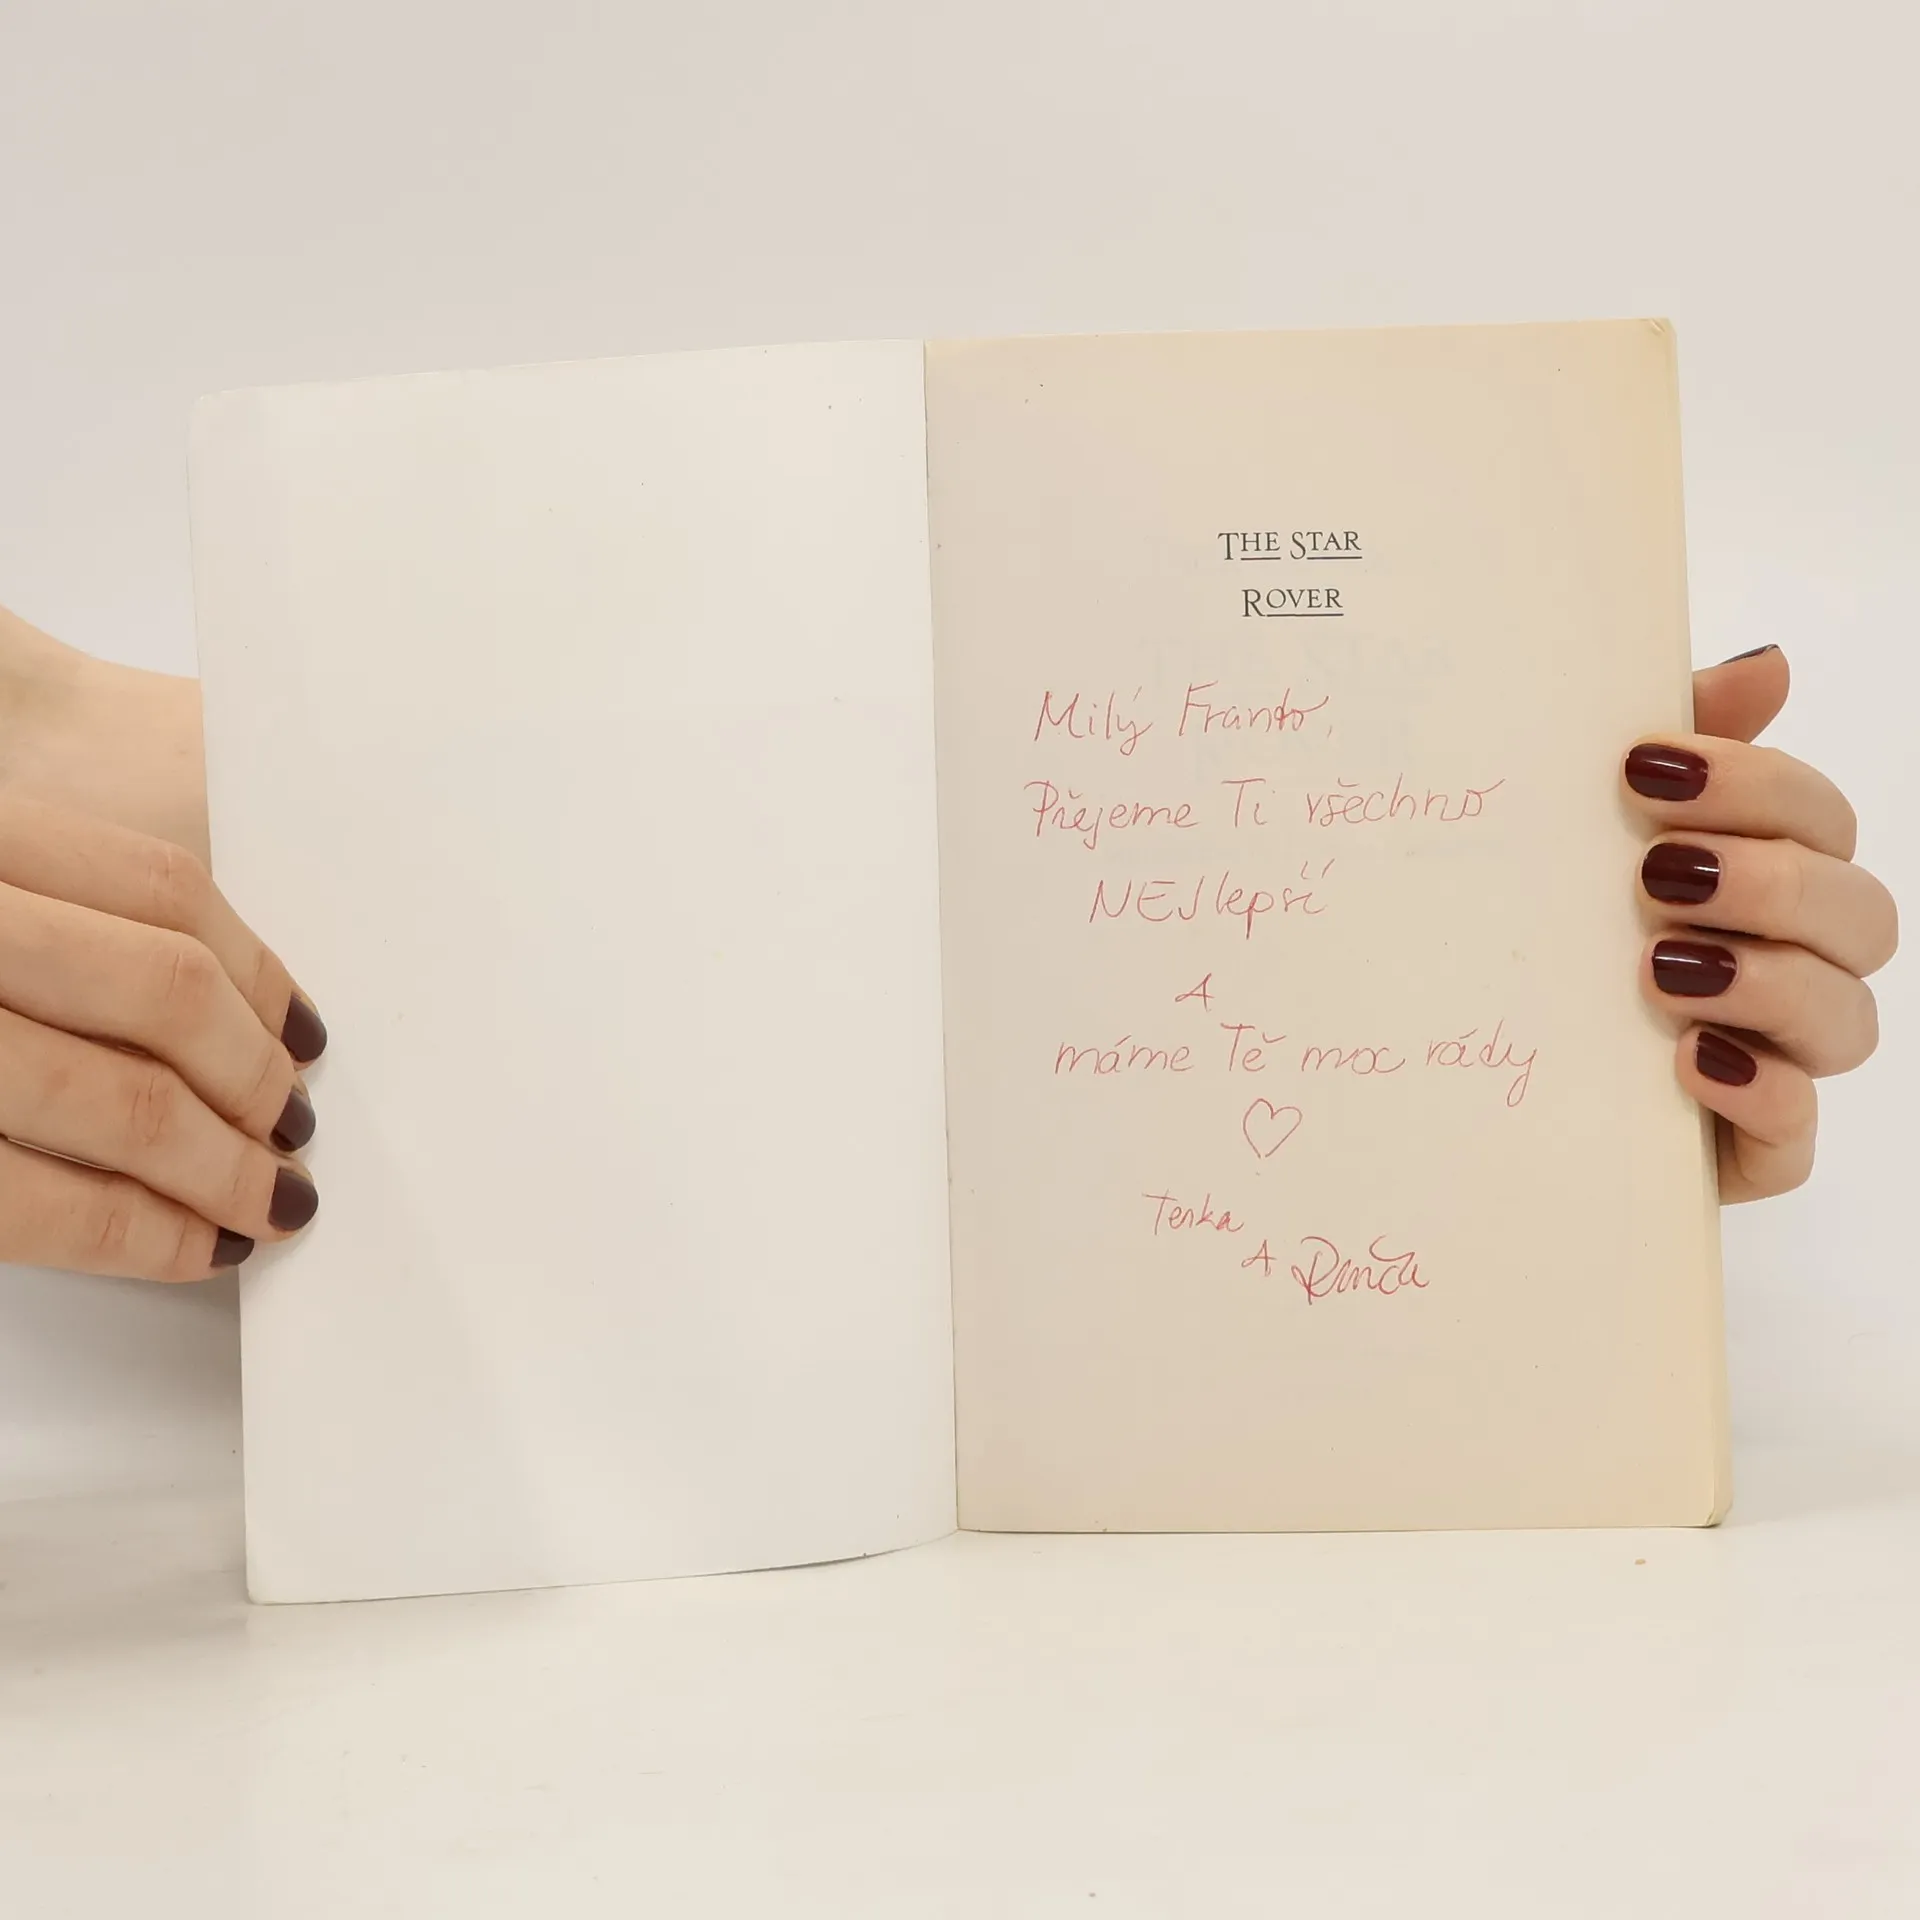 THE STAR
ROVER
Milý Franto,
Přejeme Ti všechno
NEJlepší
A
máme Tě moc rády
Terka
A